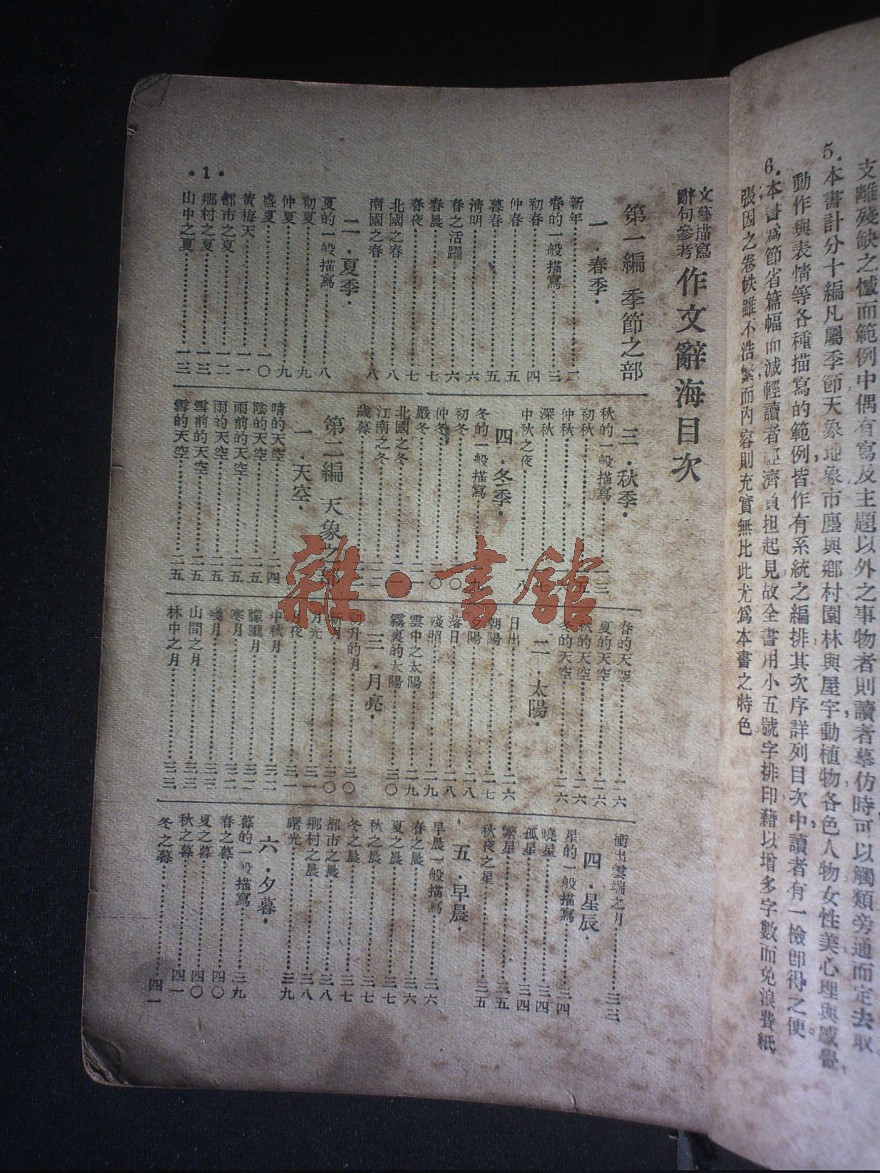 支離殘缺之憾而範例中偶有寫及主題以外之事物者則讀者摹仿時可以觸類旁通而定去取
5.本書計分十編凡屬季節天象地象市廛與鄉村園林與屋宇動植物各色人物女性美心理與感覺
動作與表情等各種描寫的範例皆作有系統之編排其次序詳列目次中讀者有一檢卽得之便
6.本書爲節省篇幅而減輕讀者經濟負担起見故全書用小五號字排印藉以增多字數而免浪費紙
張因之卷帙雖不浩繁而內容則充實無比此尤爲本書之特色
文藝描寫
辭句參考
作文辭海目次
第一編 季節之部
一·春季·
新年
春的一般描寫……三
初春……四
仲春……五
暮春……五
清明……六
春之活躍……六
春晨……七
春夜……七
北國之春……八
南國之春……八
二·夏季·
夏的一般描寫……八
初夏……九
仲夏……九
盛夏……一〇
黃梅天……一一
都市之夏……一二
鄉村之夏……一三
山中之夏……一三
三·秋季·
秋的一般描寫
初秋
仲秋
深秋
中秋之夜……一八
四·冬季·
冬的一般描寫
初冬
仲冬
嚴冬
北國之冬
江南之冬
歲暮
第二編 天象之部
一·天空·
晴的天空……二四
陰的天空……二五
雨前的天空……二五
雨的天空……二五
雪前的天空……二五
雪的天空……二五
春的天空……二六
夏的天空……二六
秋的天空……二六
冬的天空……二六
二·太陽·
日出……二六
朝陽……二七
夕陽……二八
落日……二八
殘照……二九
雲中之太陽……二九
霧裏的太陽……三〇
三·月亮·
初升的月……三〇
新月……三〇
月光……三一
月夜……三一
中秋月……三二
朦朧月……三二
寒月……三二
殘月……三二
山間之月……三三
林中之月……三三
衝出雲端之月……三三
四·星辰·
星的一般描寫……三四
曉星……三四
孤星……三四
繁星……三五
秋夜之星……三五
五·早晨·
早晨一般描寫……三六
春之晨……三六
夏之晨……三七
秋之晨……三七
冬之晨……三七
都市之晨……三八
鄉村之晨……三八
曙光……三九
六·夕暮·
暮的一般描寫……三九
春之暮……四〇
夏之暮……四〇
秋之暮……四一
冬之暮……四一
·1·
雜·書館